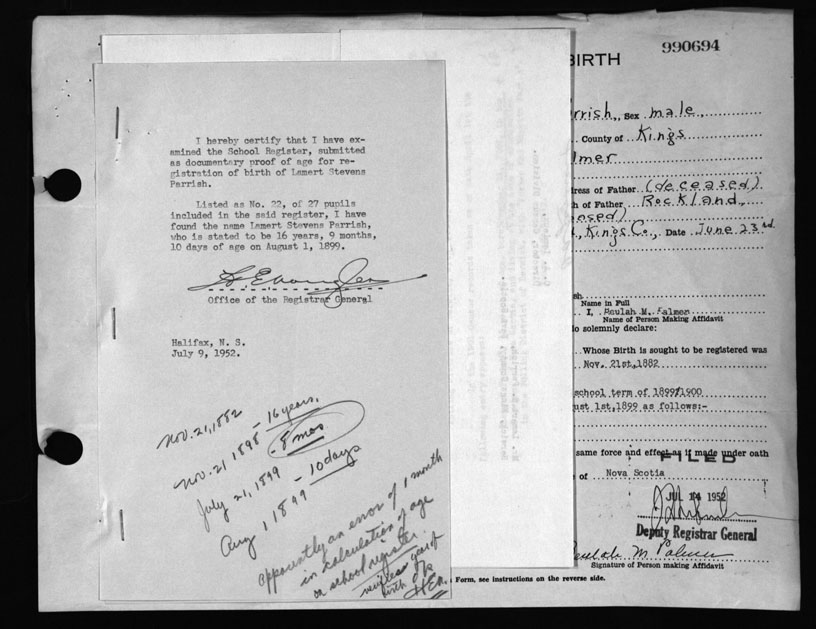 I hereby certify that I have ex-
amined the School Register, submitted
as documentary proof of age for re-
gistration of birth of Lamert Stevens
Parrish.
Listed as No. 22, of 27 pupils
included in the said register, I have
found the name Lamert Stevens Parrish,
who is stated to be 16 years, 9 months,
10 days of age on August 1, 1899.
Office of the Registrar General
Halifax, N. S.
July 9, 1952.
Nov. 21, 1882
Nov. 21 1898 - 16 years.
8 mos
July 21, 1899
Aug 1 1899 - 10 days
apparently an error of 1 month
in calculation of age
on school register.
year of
birth OK
990694
BIRTH
rrish, Sex male,
County of Kings
lmer
ress of Father (deceased)
h of Father Rockland,
Kings Co., Date June 23rd
Name in Full
I, Beulah M. Palmer
Name of Person Making Affidavit
do solemnly declare:
Whose Birth is sought to be registered was
Nov. 21st, 1882
school term of 1899/1900
ust 1st, 1899 as follows:-
same force and effect as if made under oath
FILED
of Nova Scotia
JUL 14 1952
Deputy Registrar General
Beulah M Palmer
Signature of Person making Affidavit
Form, see instructions on the reverse side.